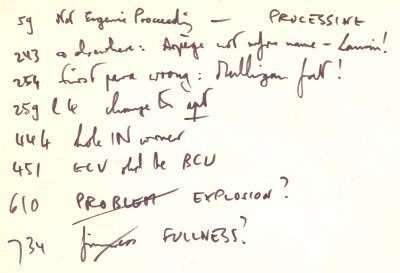 59 Not Eugenie Proceeding — PROCESSING
243 & elsewhere: Arpège not mfrs name – Lanvin!
254 first para wrong: Mulligan fort!
259 l 4 change to apt
444 hole IN corner
451 ECV shd be BCU
610 PROBLEM EXPLOSION?
734 FULLNESS?